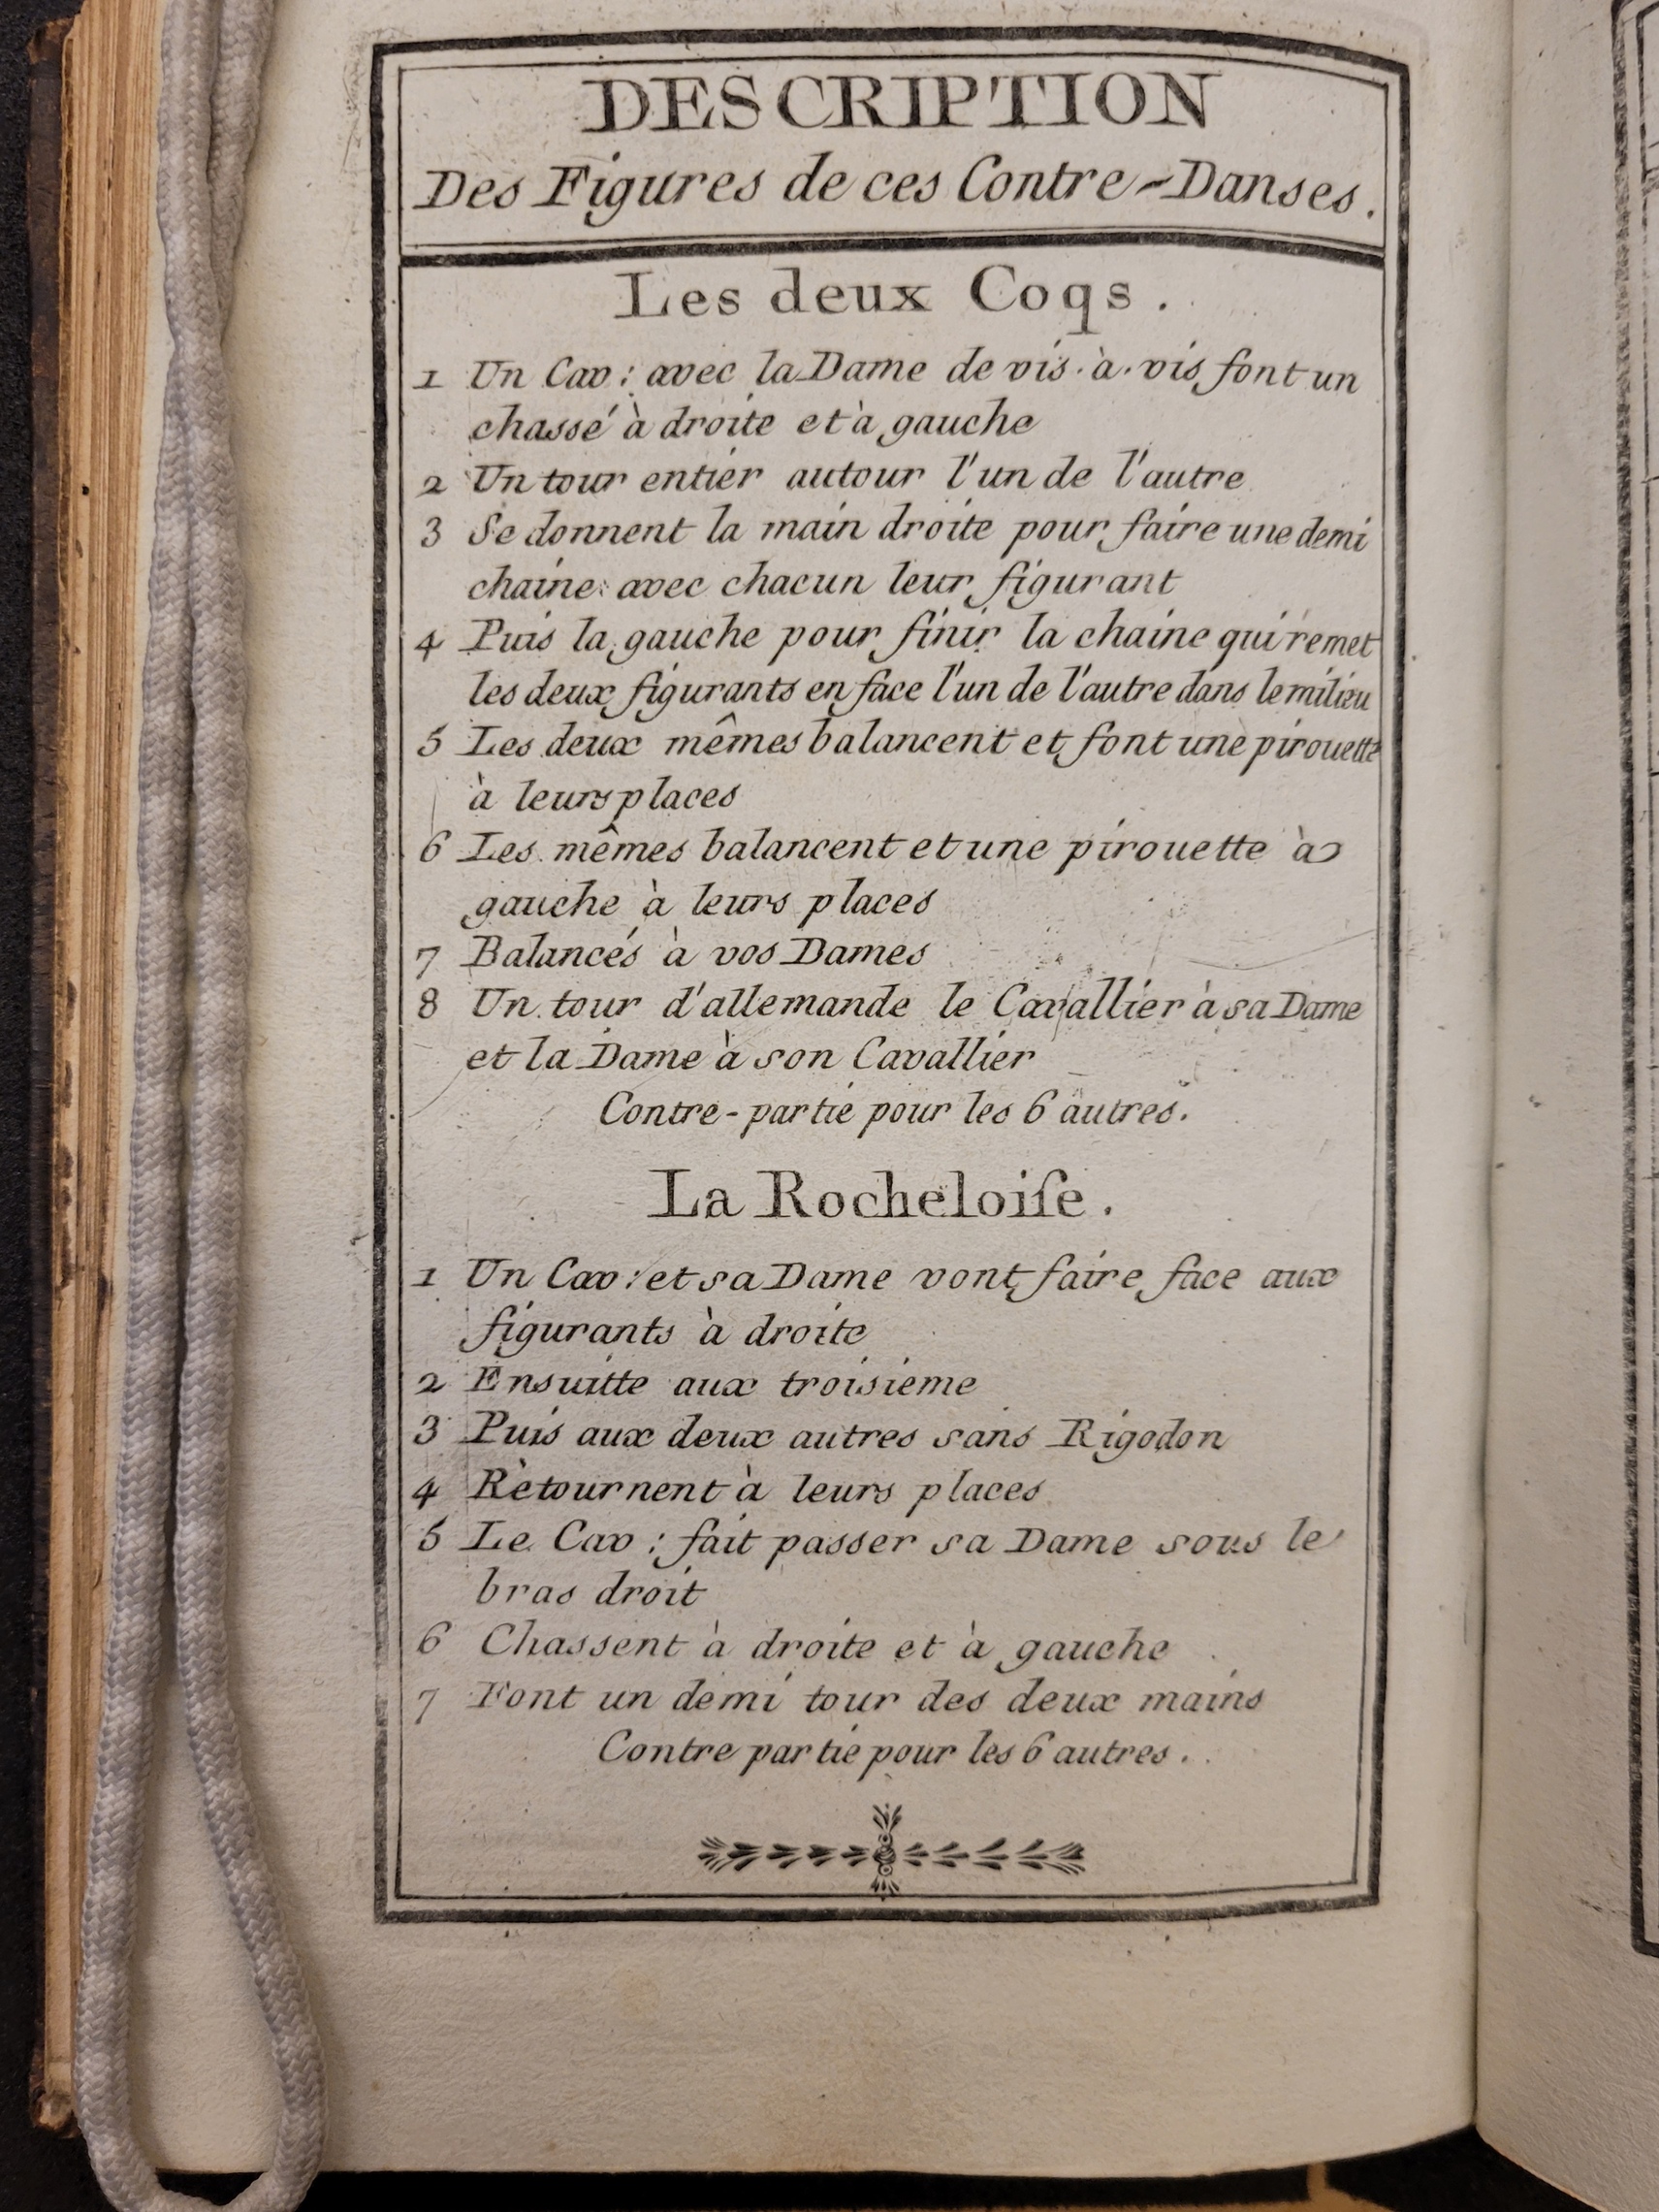 DESCRIPTION
Des Figures de ces Contre-Danses.
Les deux Coqs.
1 Un Cav: avec la Dame de vis.à.vis font un
chassé à droite et à gauche
2 Un tour entier autour l'un de l'autre
3 Se donnent la main droite pour faire une demi
chaine avec chacun leur figurant
4 Puis la gauche pour finir la chaine qui remet
les deux figurants en face l'un de l'autre dans le milieu
5 Les deux mêmes balancent et font une pirouette
à leurs places
6 Les mêmes balancent et une pirouette à
gauche à leurs places
7 Balancés à vos Dames
8 Un tour d'allemande le Cavallier à sa Dame
et la Dame à son Cavallier
Contre-partie pour les 6 autres.
La Rocheloiſe.
1 Un Cav: et sa Dame vont faire face aux
figurants à droite
2 Ensuitte aux troisieme
3 Puis aux deux autres sans Rigodon
4 Retournent à leurs places
5 Le Cav: fait passer sa Dame sous le
bras droit
6 Chassent à droite et à gauche
7 Font un demi tour des deux mains
Contre partie pour les 6 autres.